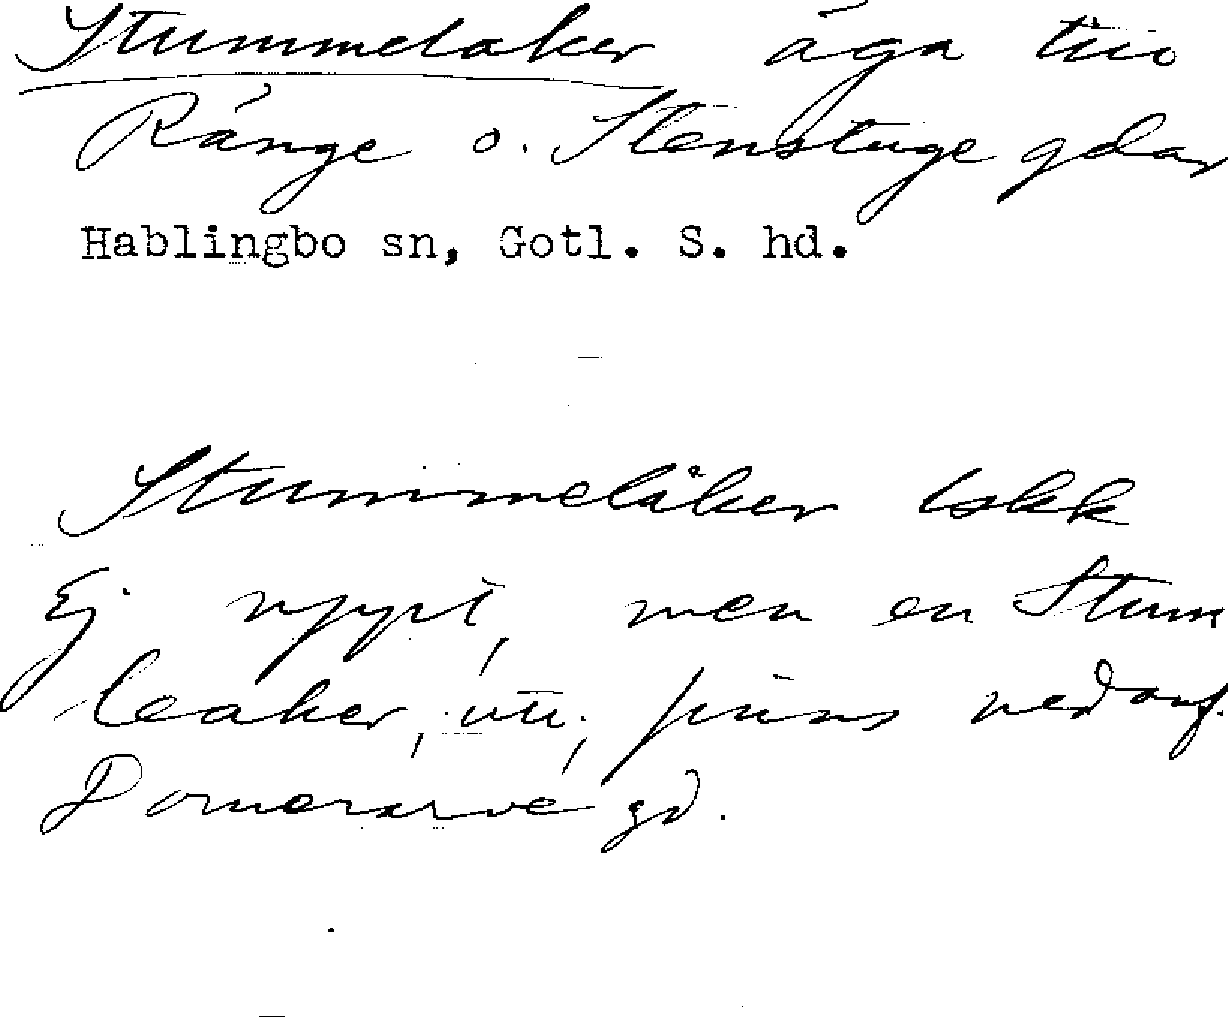 Stummelåker äga till
Ränge o. Stenstuge gdar
Hablingbo sn, Gotl. S. hd.
Stummelåker Iskk
Ej uppt, men en Stum
leaker,  finns ned anf.
Domerarve gd.